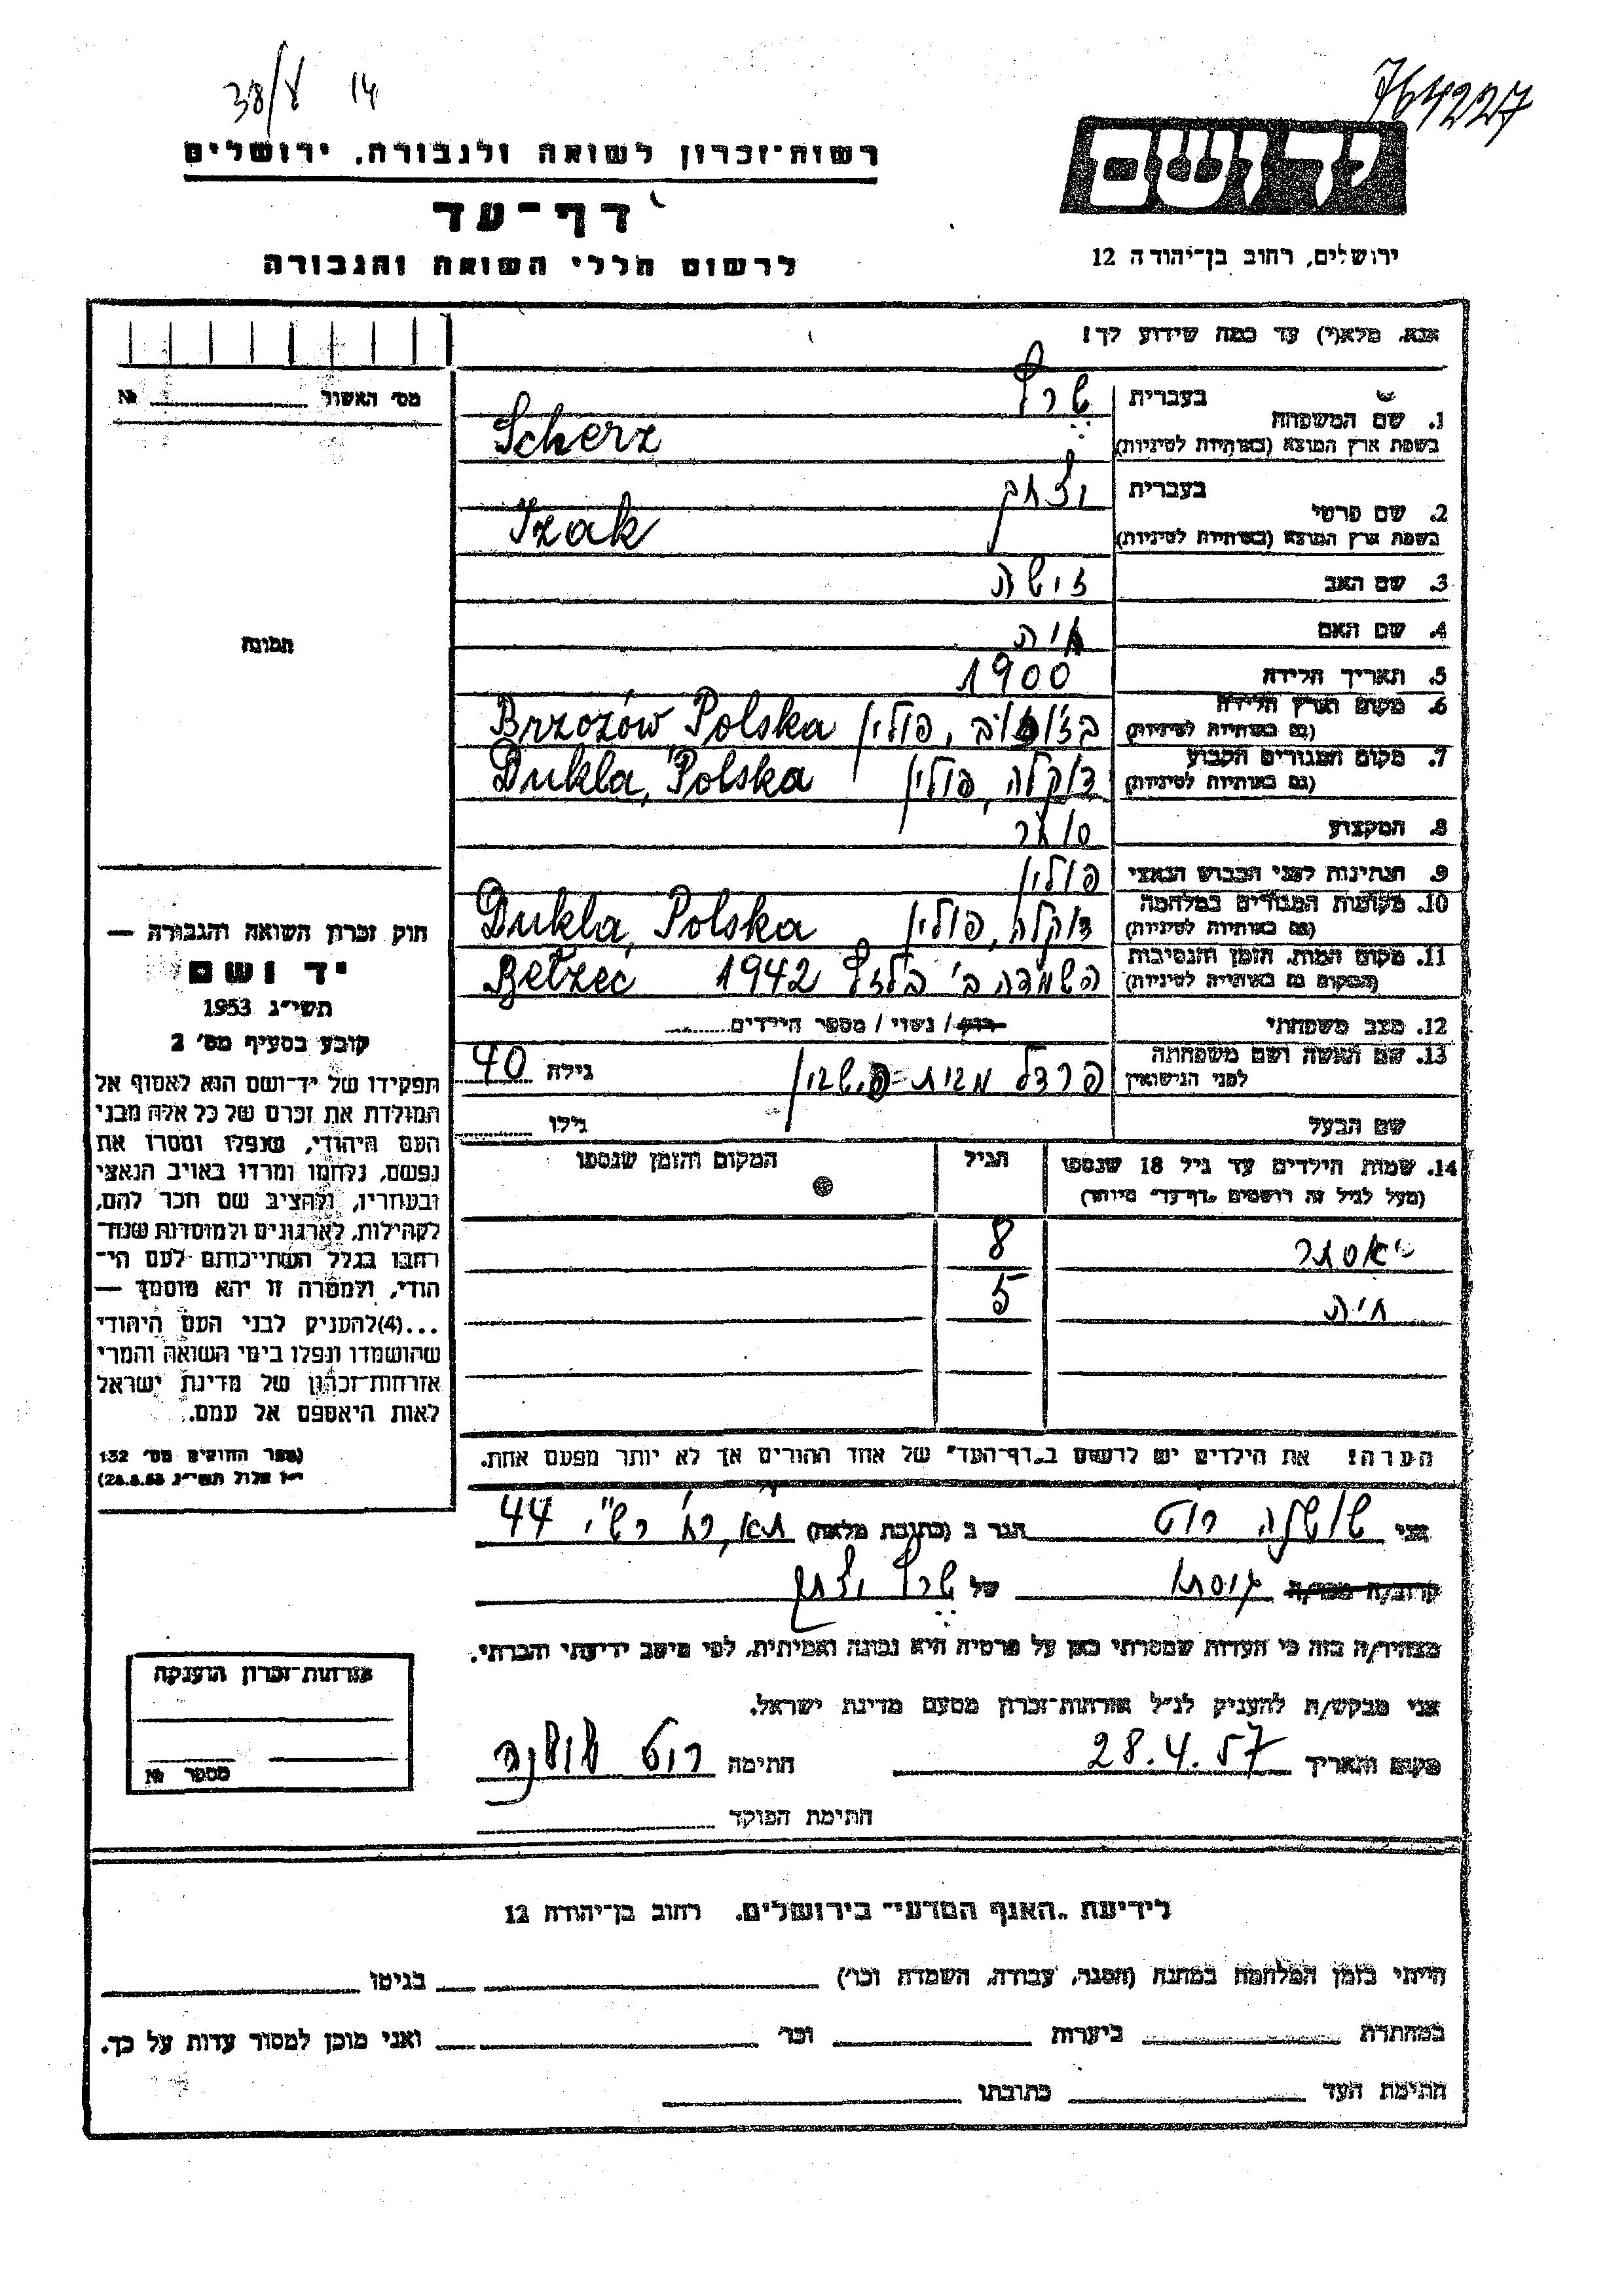 38/ע 14
764227
יד ושם
רשות־זכרון לשואה ולגבורה, ירושלים
דף־עד
לרשום חללי השואה והגבורה
ירושלים, רחוב בן־יהודה 12
אנא, מלא(י) עד כמה שידוע לך!
מס׳ האשור № 
תמונה
1. שם המשפחה
בעברית שרץ
בשפת ארץ המוצא (באותיות לטיניות) Scherz
2. שם פרטי
בעברית יצחק
בשפת ארץ המוצא (באותיות לטיניות) Izak
3. שם האב זישה
4. שם האם חיה
5. תאריך הלידה 1900
6. מקום וארץ הלידה
(גם באותיות לטיניות) פולין Brzozów Polska
7. מקום המגורים הקבוע
(גם באותיות לטיניות) דוקלה, פולין Dukla, Polska
8. המקצוע סוחר
9. הנתינות לפני הכבוש הנאצי פולין
10. מקומות המגורים במלחמה
(גם באותיות לטיניות) דוקלה, פולין Dukla, Polska
11. מקום המות, הזמן והנסיבות
(המקום גם באותיות לטיניות) השמדה ב׳ בלזץ 1942 Bełzec
12. מצב משפחתי רוק / נשוי / מספר הילדים
13. שם האשה ושם משפחתה
לפני הנישואין פרדל מבית פישביין גילה 40
שם הבעל גילו
14. שמות הילדים עד גיל 18 שנספו
(מעל לגיל זה רושמים "דף־עד" מיוחד)
הגיל
המקום והזמן שנספו
אסתר 8
חיה 5
הערה! את הילדים יש לרשום ב"דף־העד" של אחד ההורים אך לא יותר מפעם אחת.
חוק זכרון השואה והגבורה —
יד ושם
תשי״ג 1953
קובע בסעיף מס׳ 2
תפקידו של יד־ושם הוא לאסוף אל
המולדת את זכרם של כל אלה מבני
העם היהודי, שנפלו ומסרו את
נפשם, נלחמו ומרדו באויב הנאצי
ובעוזריו, ולהציב שם וזכר להם,
לקהילות, לארגונים ולמוסדות שנח־
רבו בגלל השתייכותם לעם הי־
הודי, ולמטרה זו יהא מוסמך —
...(4) להעניק לבני העם היהודי
שהושמדו ונפלו בימי השואה והמרי
אזרחות־זכרון של מדינת ישראל
לאות היאספם אל עמם.
(ספר החוקים מס׳ 132
י״ז אלול תשי״ג 28.8.53)
אני שושנה רוט הגר ב (כתובת מלאה) ת״א, רח׳ רש״י 44
קרוב/ה מכר/ה גיסתו של שרץ יצחק
מצהיר/ה בזה כי העדות שמסרתי כאן על פרטיה היא נכונה ואמיתית, לפי מיטב ידיעתי והכרתי.
אני מבקש/ת להעניק לנ״ל אזרחות־זכרון מטעם מדינת ישראל.
מקום ותאריך 28.4.57 חתימה רוט שושנה
חתימת הפוקד
אזרחות־זכרון הוענקה
מספר №
לידיעת "האגף המדעי" בירושלים, רחוב בן־יהודה 12
הייתי בזמן המלחמה במחנה (הסגר, עבודה, השמדה וכו׳) בגיטו
במחתרת ביערות וכו׳ ואני מוכן למסור עדות על כך.
חתימת העד כתובתו